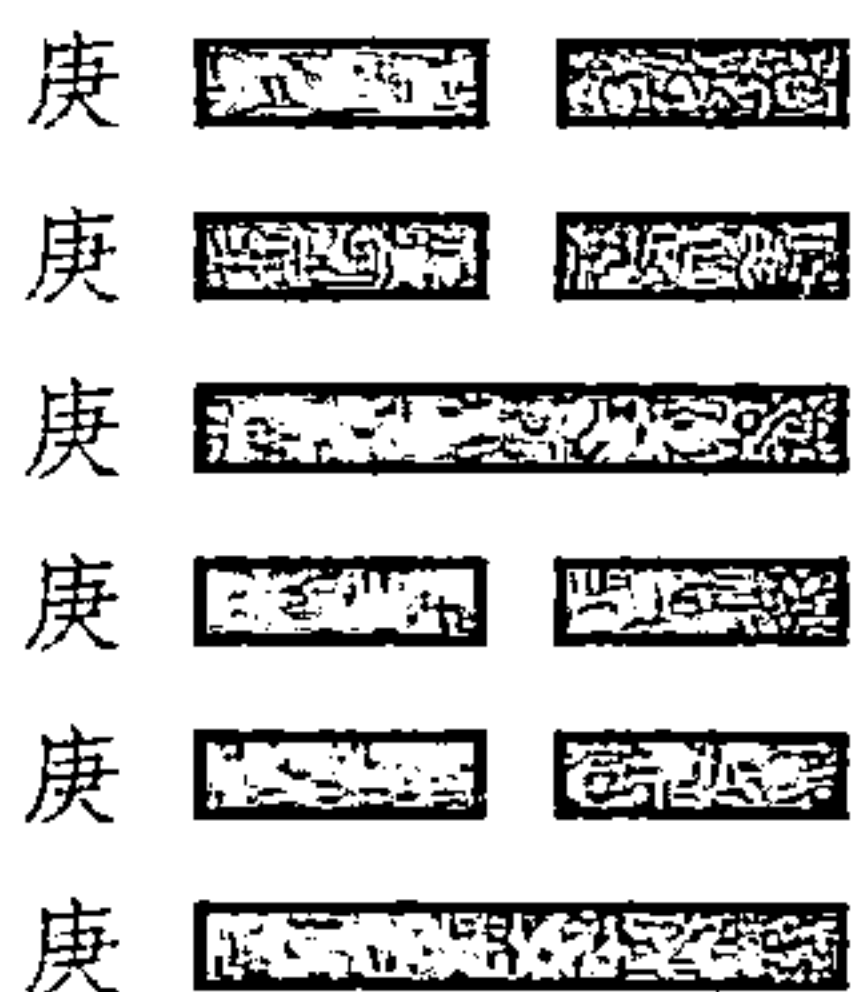 庚
庚
庚
庚
庚
庚